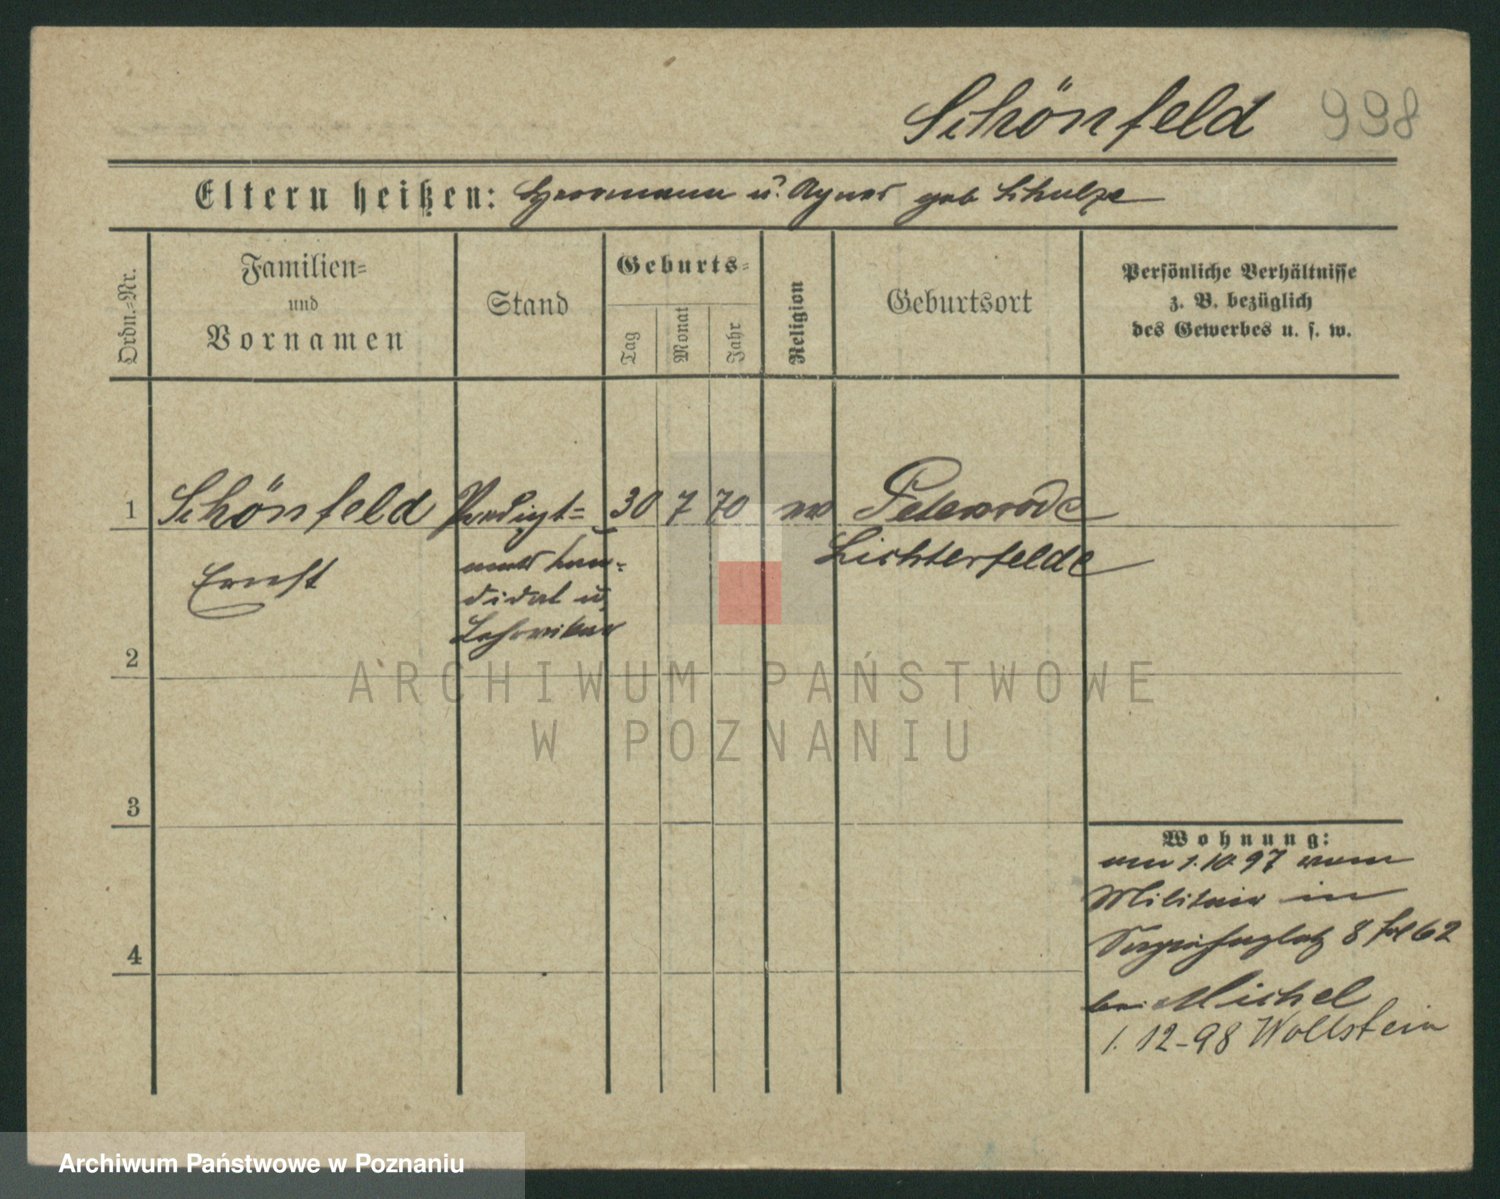 Schönfeld 998
Eltern heißen: Herrmann u. Agnes geb Schulze
Ordn.-Nr.
Familien-
und
Vornamen
Stand
Geburts-
Tag
Monat
Jahr
Religion
Geburtsort
Persönliche Verhältnisse
z. B. bezüglich
des Gewerbes u. s. w.
1 Schönfeld Predigt- 30 7 70 ev
Lichterfelde
Ernst
didat u.
2
3
4
ARCHIWUM PAŃSTWOWE
W POZNANIU
Wohnung:
am 1.10.97 vom
Militair in
8 62
bei Michel
1. 12-98 Wollstein
Archiwum Państwowe w Poznaniu